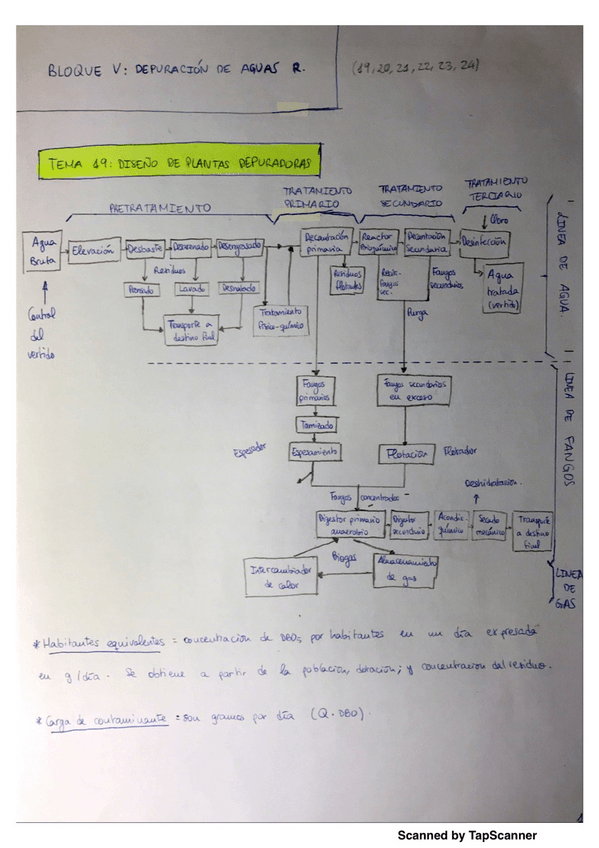 BLOQUE V: DEPURACIÓN DE AGUAS R. (19, 20, 21, 22, 23, 24)
TEMA 19: DISEÑO DE PLANTAS DEPURADORAS
PRETRATAMIENTO
TRATAMIENTO PRIMARIO
TRATAMIENTO SECUNDARIO
TRATAMIENTO TERCIARIO
Cloro
Agua Bruta
Elevación
Desbaste
Desarenado
Desengrasado
Decantación primaria
Reactor
Decantación secundaria
Desinfección
LINEA DE AGUA.
Control del vertido
Residuos
Prensado
Lavado
Transporte a destino final
Tratamiento físico-químico
Residuos flotados
Fangos secundarios
Agua tratada (vertido)
Purga
Fangos primarios
Fangos secundarios en exceso
LINEA DE FANGOS
Tamizado
Espesador
Espesamiento
Flotación
Flotador
Deshidratación.
Fangos concentrados
Digestor primario anaerobio
Digestor secundario
Acondic. químico
Secado mecánico
Transporte a destino final
Biogas
Intercambiador de calor
Almacenamiento de gas
LINEA DE GAS
* Habitantes equivalentes = concentración de DBO5 por habitantes en un día expresada
en g/día. Se obtiene a partir de la población, dotación; y concentración del residuo.
* Carga de contaminante = son gramos por día (Q · DBO).
1
Scanned by TapScanner